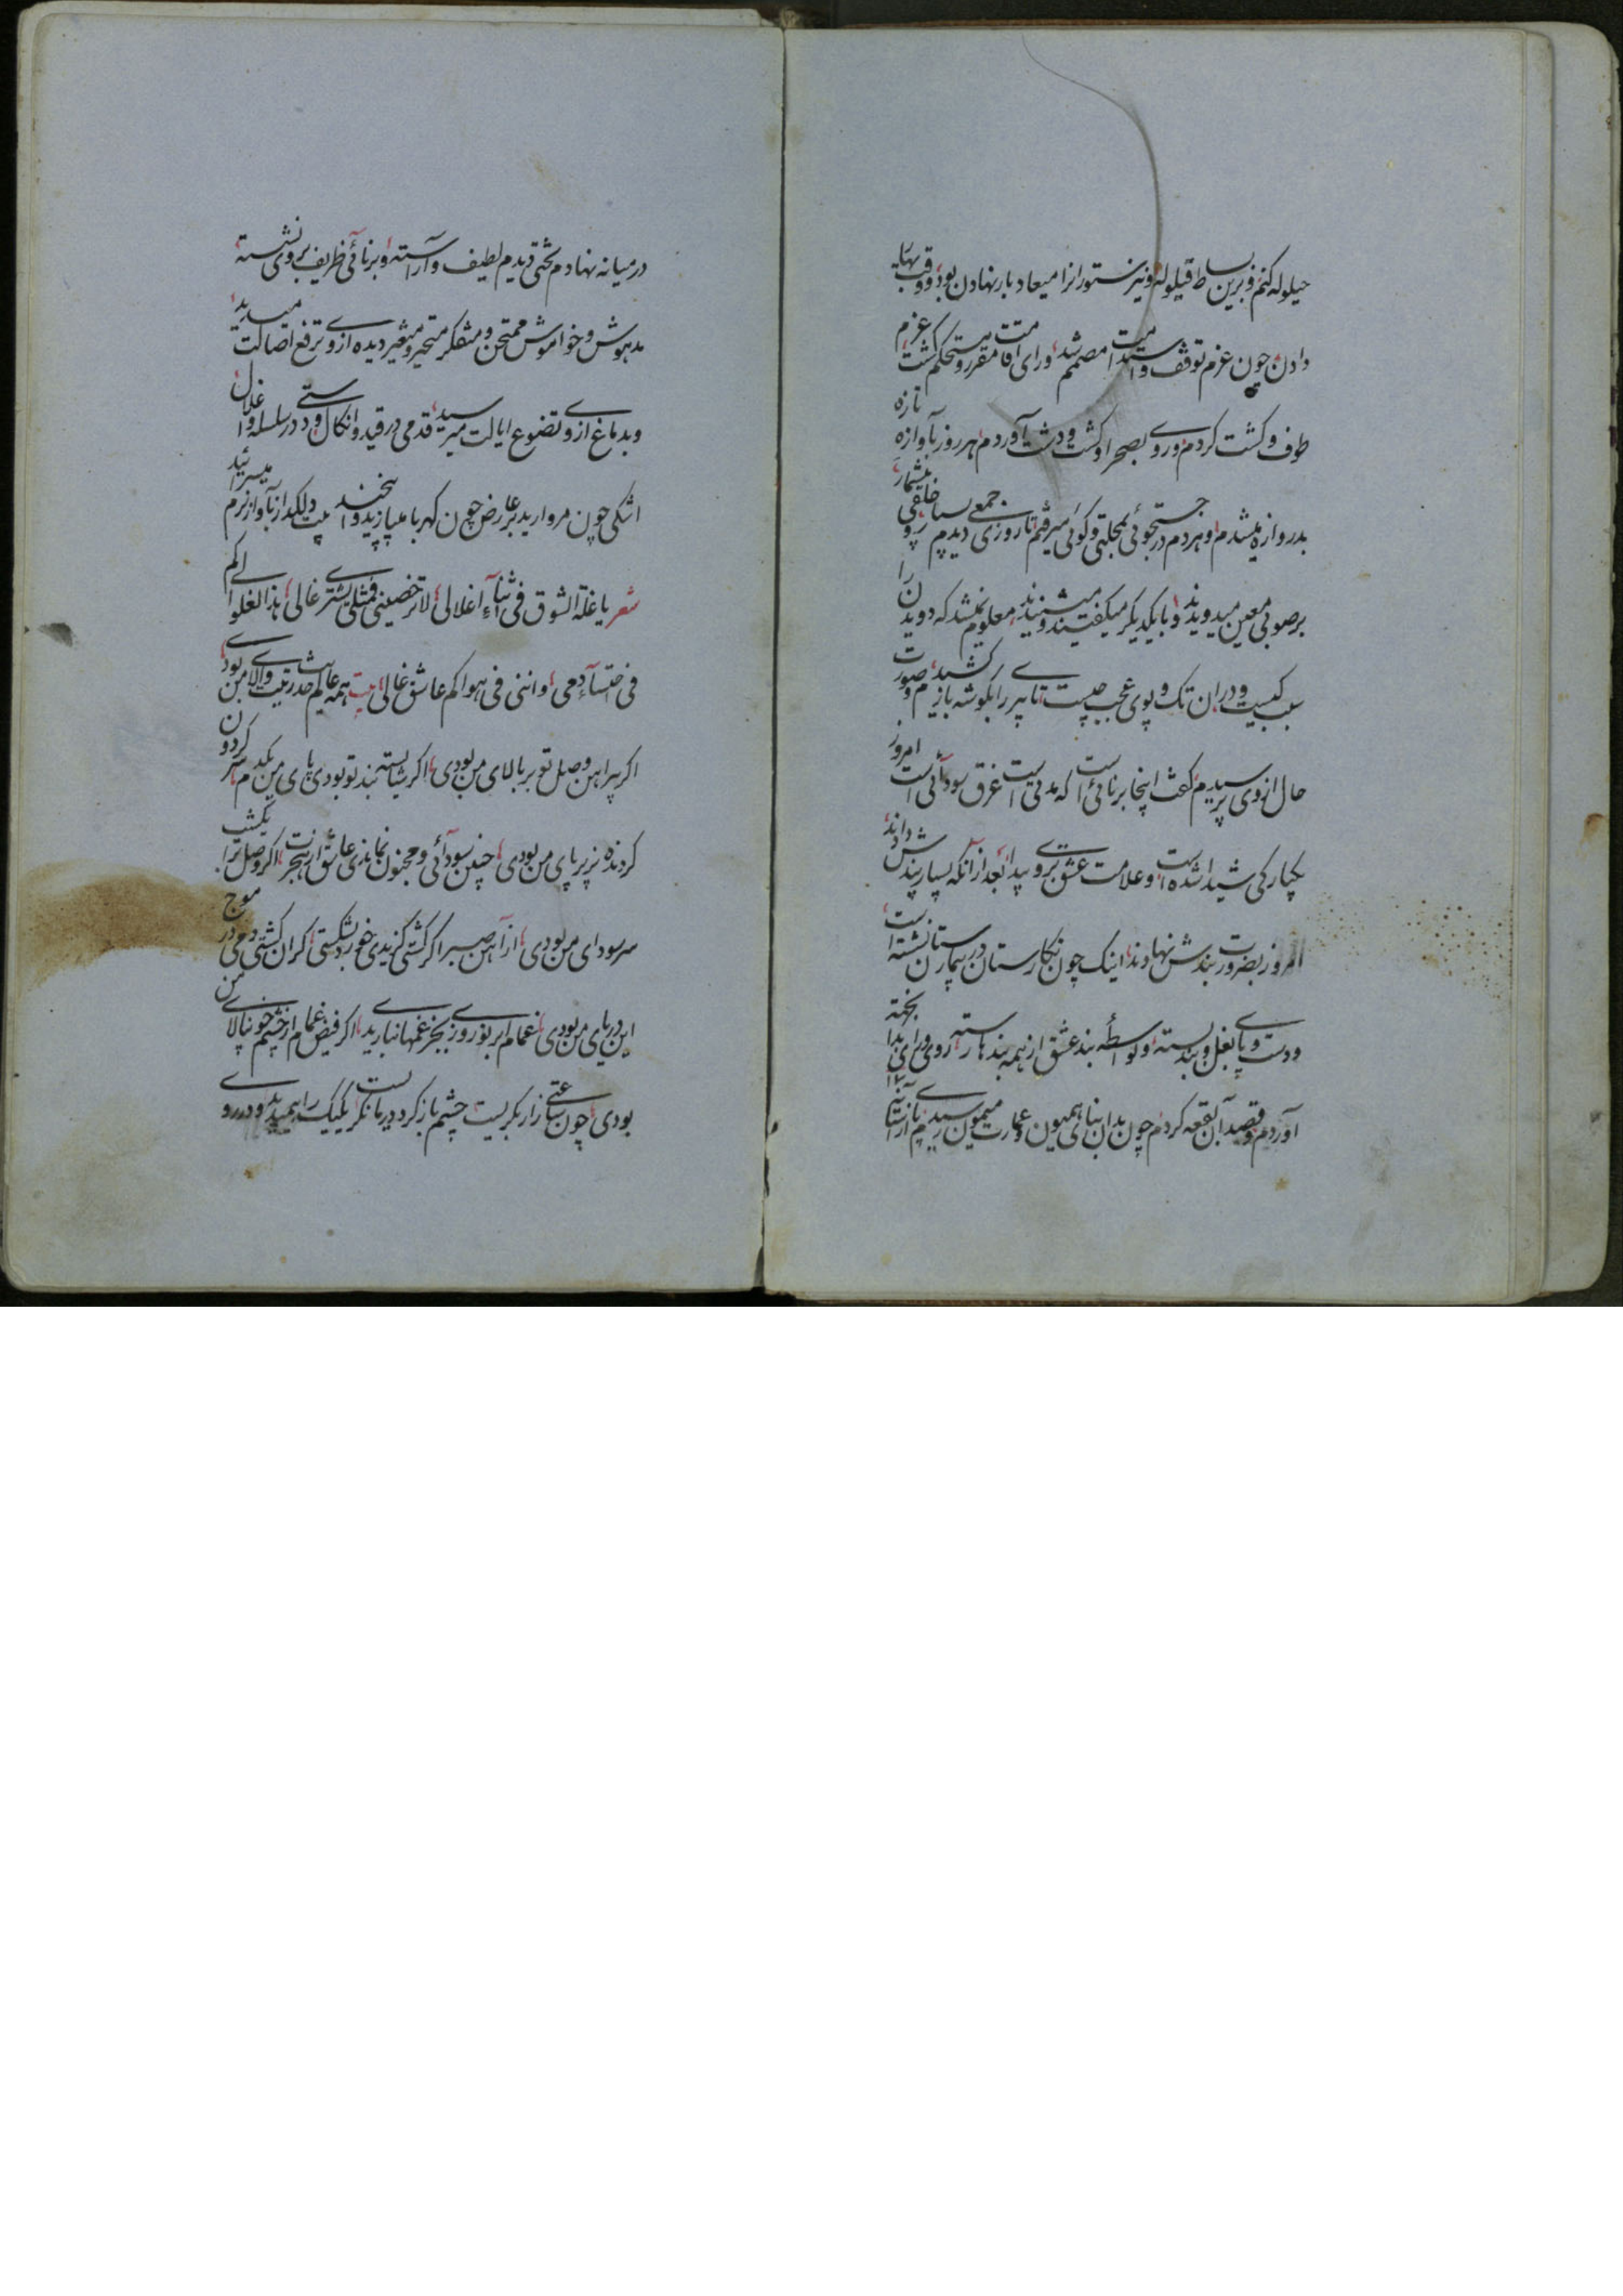 حیلوله کنم و برین بساط قیلوله و نیز ستور انرا میعاد بار نهادن بود و وقت بهار
دادن چون عزم توقف و استدامت مصمم شد و رای اقامت مقرر و مستحکم کشت عزم
طوف و کشت کردم و روی بصحرا و کشت و دشت آوردم هر روز بآوازه تازه
بدروازه میشدم و هر دم در جستجوئی بمحلتی و کوئی میرفتم تا روزی دیدم جمعی بسیار و خلقی بیشمار
بر صوبی معین میدویدند و با یکدیکر میکفتند و میشنیدند معلوم نمیشد که دویدن را
سبب کیست و در ان تک و پوی عجب چیست تا پیری را بکوشه باز کشیدم و صورت
حال از وی پرسیدم کفت اینجا برنائی است که مدتی است غرق سودائی است امروز
یکبارکی شیدا شده است و علامت عشق بروی پیدا بعد از آنکه بسیار پندش دادند
امروز بضرورت بندش نهادند اینک چون نکارستان در بیمارستان نشسته است
و دست و پای بغل و بند بسته و بواسطه بند عشق از همه بندها رسته روی و رای بدان بخته
آوردم و قصد آن بقعه کردم چون بدان بنای همیون و عمارت میمون رسیدم پای از آستانه
در میانه نهادم تختی دیدم لطیف و آراسته و برنائی ظریف بر وی نشسته
مدهوش و خواموش ممتحن و متفکر متحیر و متغیر دیده از وی ترفع اصالت میدید
و بدماغ از وی تضوع ایالت میرسید قدمی در قید و انکال و دستی در سلسله و اغلال
اشکی چون مروارید بر عارض چون کهربا میپازید و ابیت بخند دلکداز بآواز نرم میسرائید
شعر یا غلة الشوق فی اثناء اغلالی لا ترخصینی فمثلی یشتری غالی هذا الغلو الی کم
فی اختسآء دمی و اننی فی هواکم عاشق غالی بیت همه عالم صدر بیت والای من بودی
اکر پیراهن وصل تو بر بالای من بودی اکر شایسته بند تو بودی پای من یکدم سر کردون
کردنده بزیر پای من بودی چنین سودآئی و مجنون نماندی عاشق از هجرت اکر وصل ترا یکشب
سر سودای من بودی از آهن صبر اکر کشتی کزیدی خورد بشکستی اکر ان کشتی دمی در موج
این دریای من بودی غمام ابر نوروزی بجز غمها نباریدی اکر فیض غمام از چشم خونپالای من
بودی چون ساعتی زار بکریست چشم باز کرد و در مانکریست یکیک را همیدید و در روی